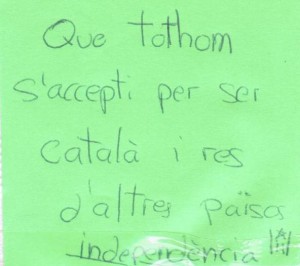 Que tothom
s'accepti per ser
català i res
d'altres països
independència